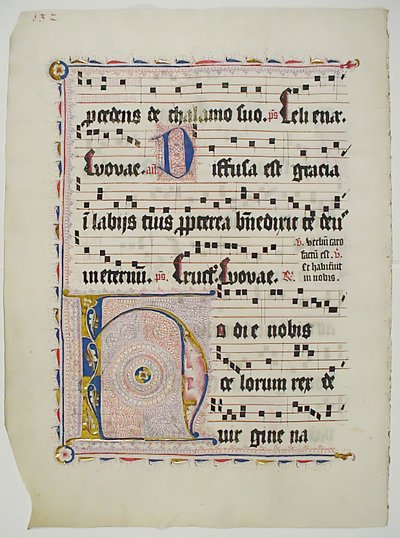 132
pcedens de thalamo suo. ps Celi enar.
Evovae. an Diffusa est gracia
i labijs tuis ppterea bnedixit te deus
in eternū. ps. Eruct. Evovae. R.
v. Verbū caro
factū est. v.
Et habitavit
in nobis.
Hodie nobis
ce lorum rex de
vir gine na